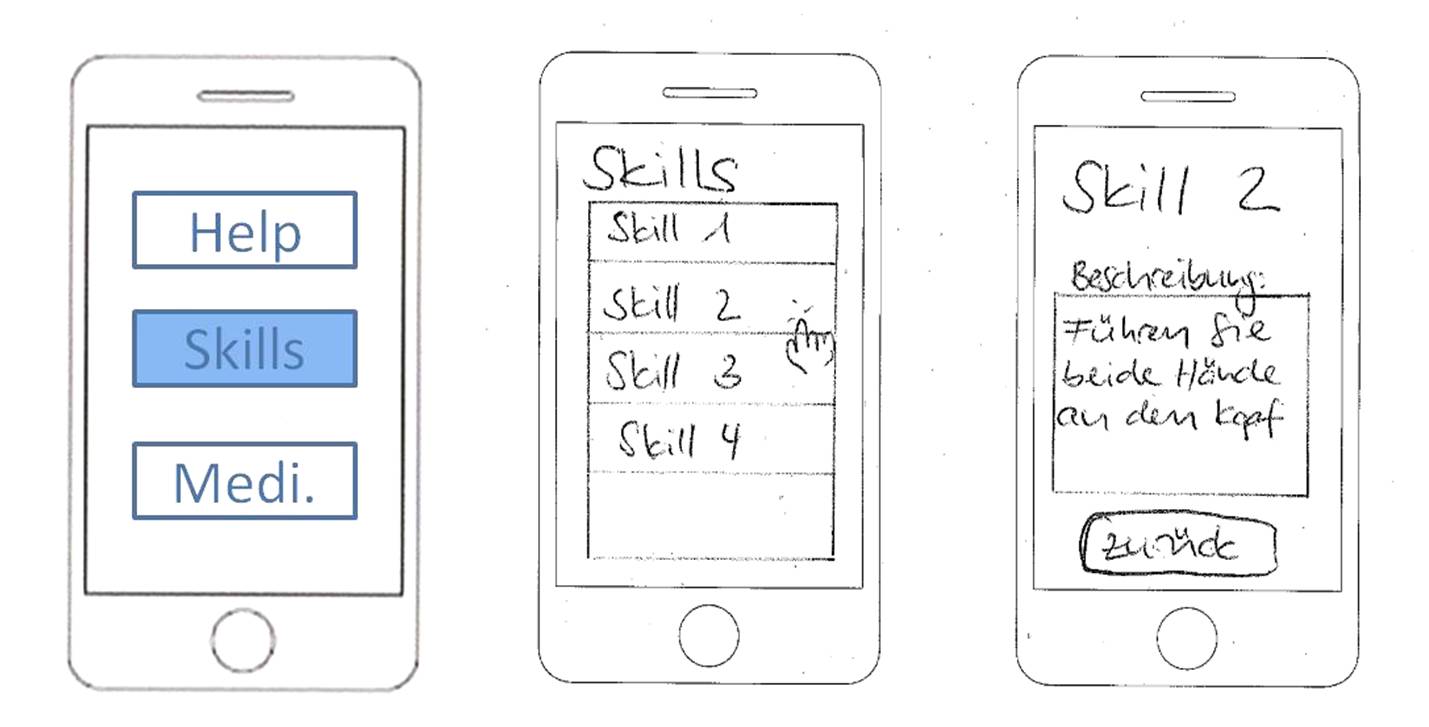 Help
Skills
Medi.
Skills
Skill 1
Skill 2
Skill 3
Skill 4
Skill 2
Beschreibung:
Führen Sie
beide Hände
an den Kopf
zurück